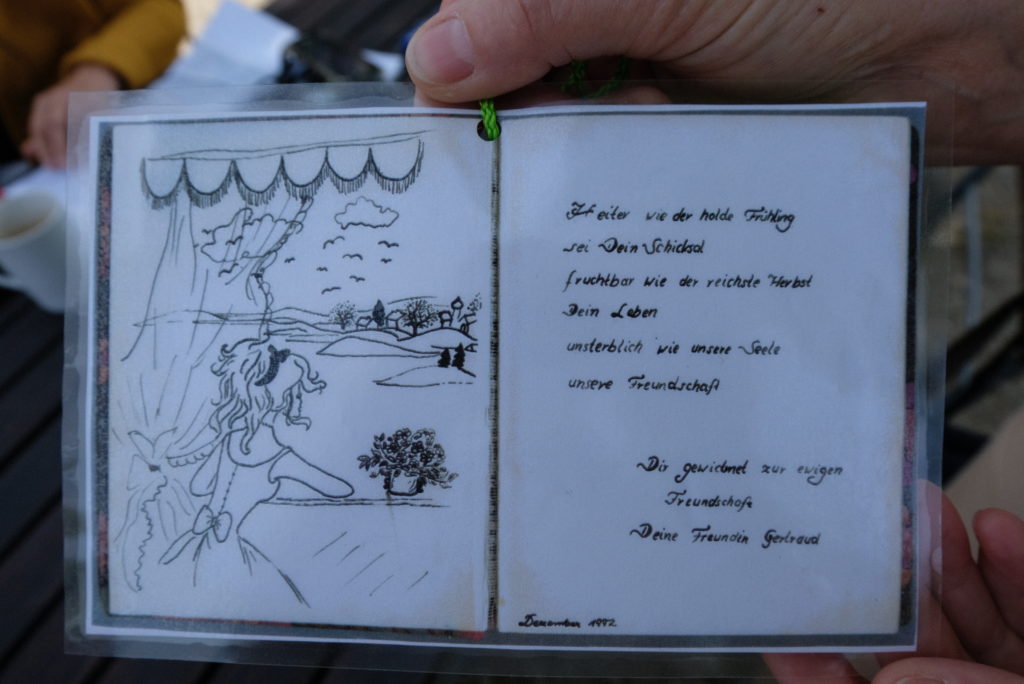 Heiter wie der holde Frühling
sei Dein Schicksal
fruchtbar wie der reichste Herbst
Dein Leben
unsterblich wie unsere Seele
unsere Freundschaft
Dir gewidmet zur ewigen
Freundschaft
Deine Freundin Gertraud
Dezember 1992